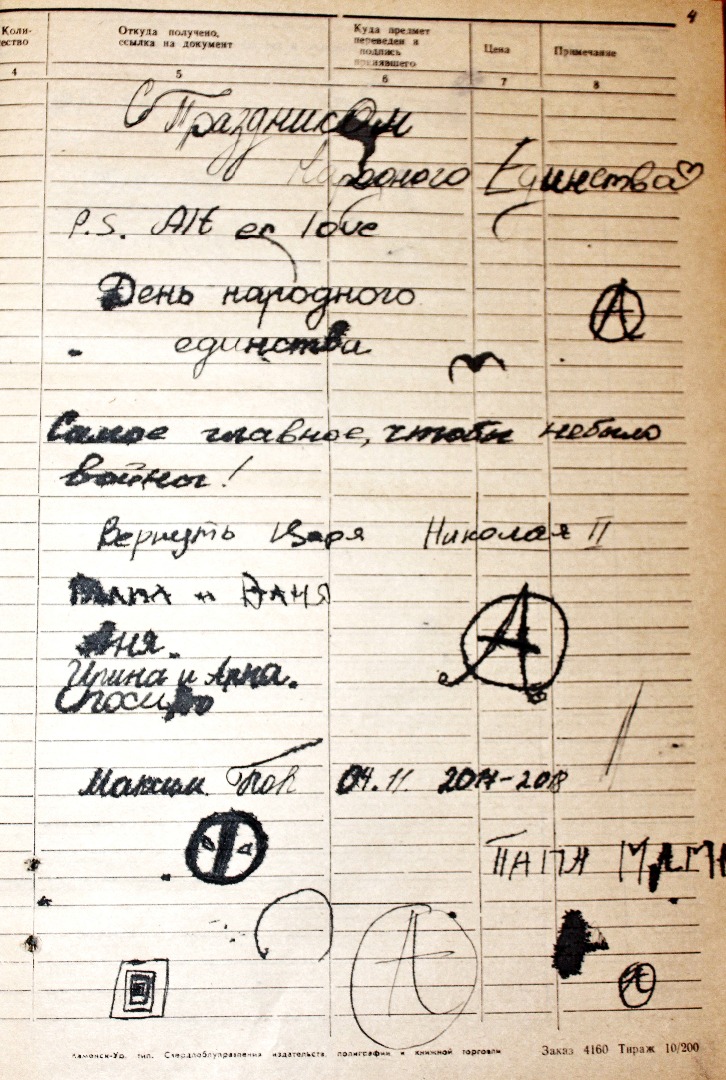 4
Коли-
чество
Откуда получено,
ссылка на документ
Куда предмет
переведен и
подпись
принявшего
Цена
Примечание
4 5 6 7 8
С Праздником
Народного Единства
P.S. Alt er love
День народного
единства
А
Самое главное, чтобы небыло
войны!
Вернуть Царя Николая II
и ДАНЯ
Аня.
Ирина и Арина.
А
Максим 04.11. 2017-2018
ПАПА МАМА
А
А
Каменск-Ур. тип. Свердлоблуправления издательств, полиграфии и книжной торговли Заказ 4160 Тираж 10/200